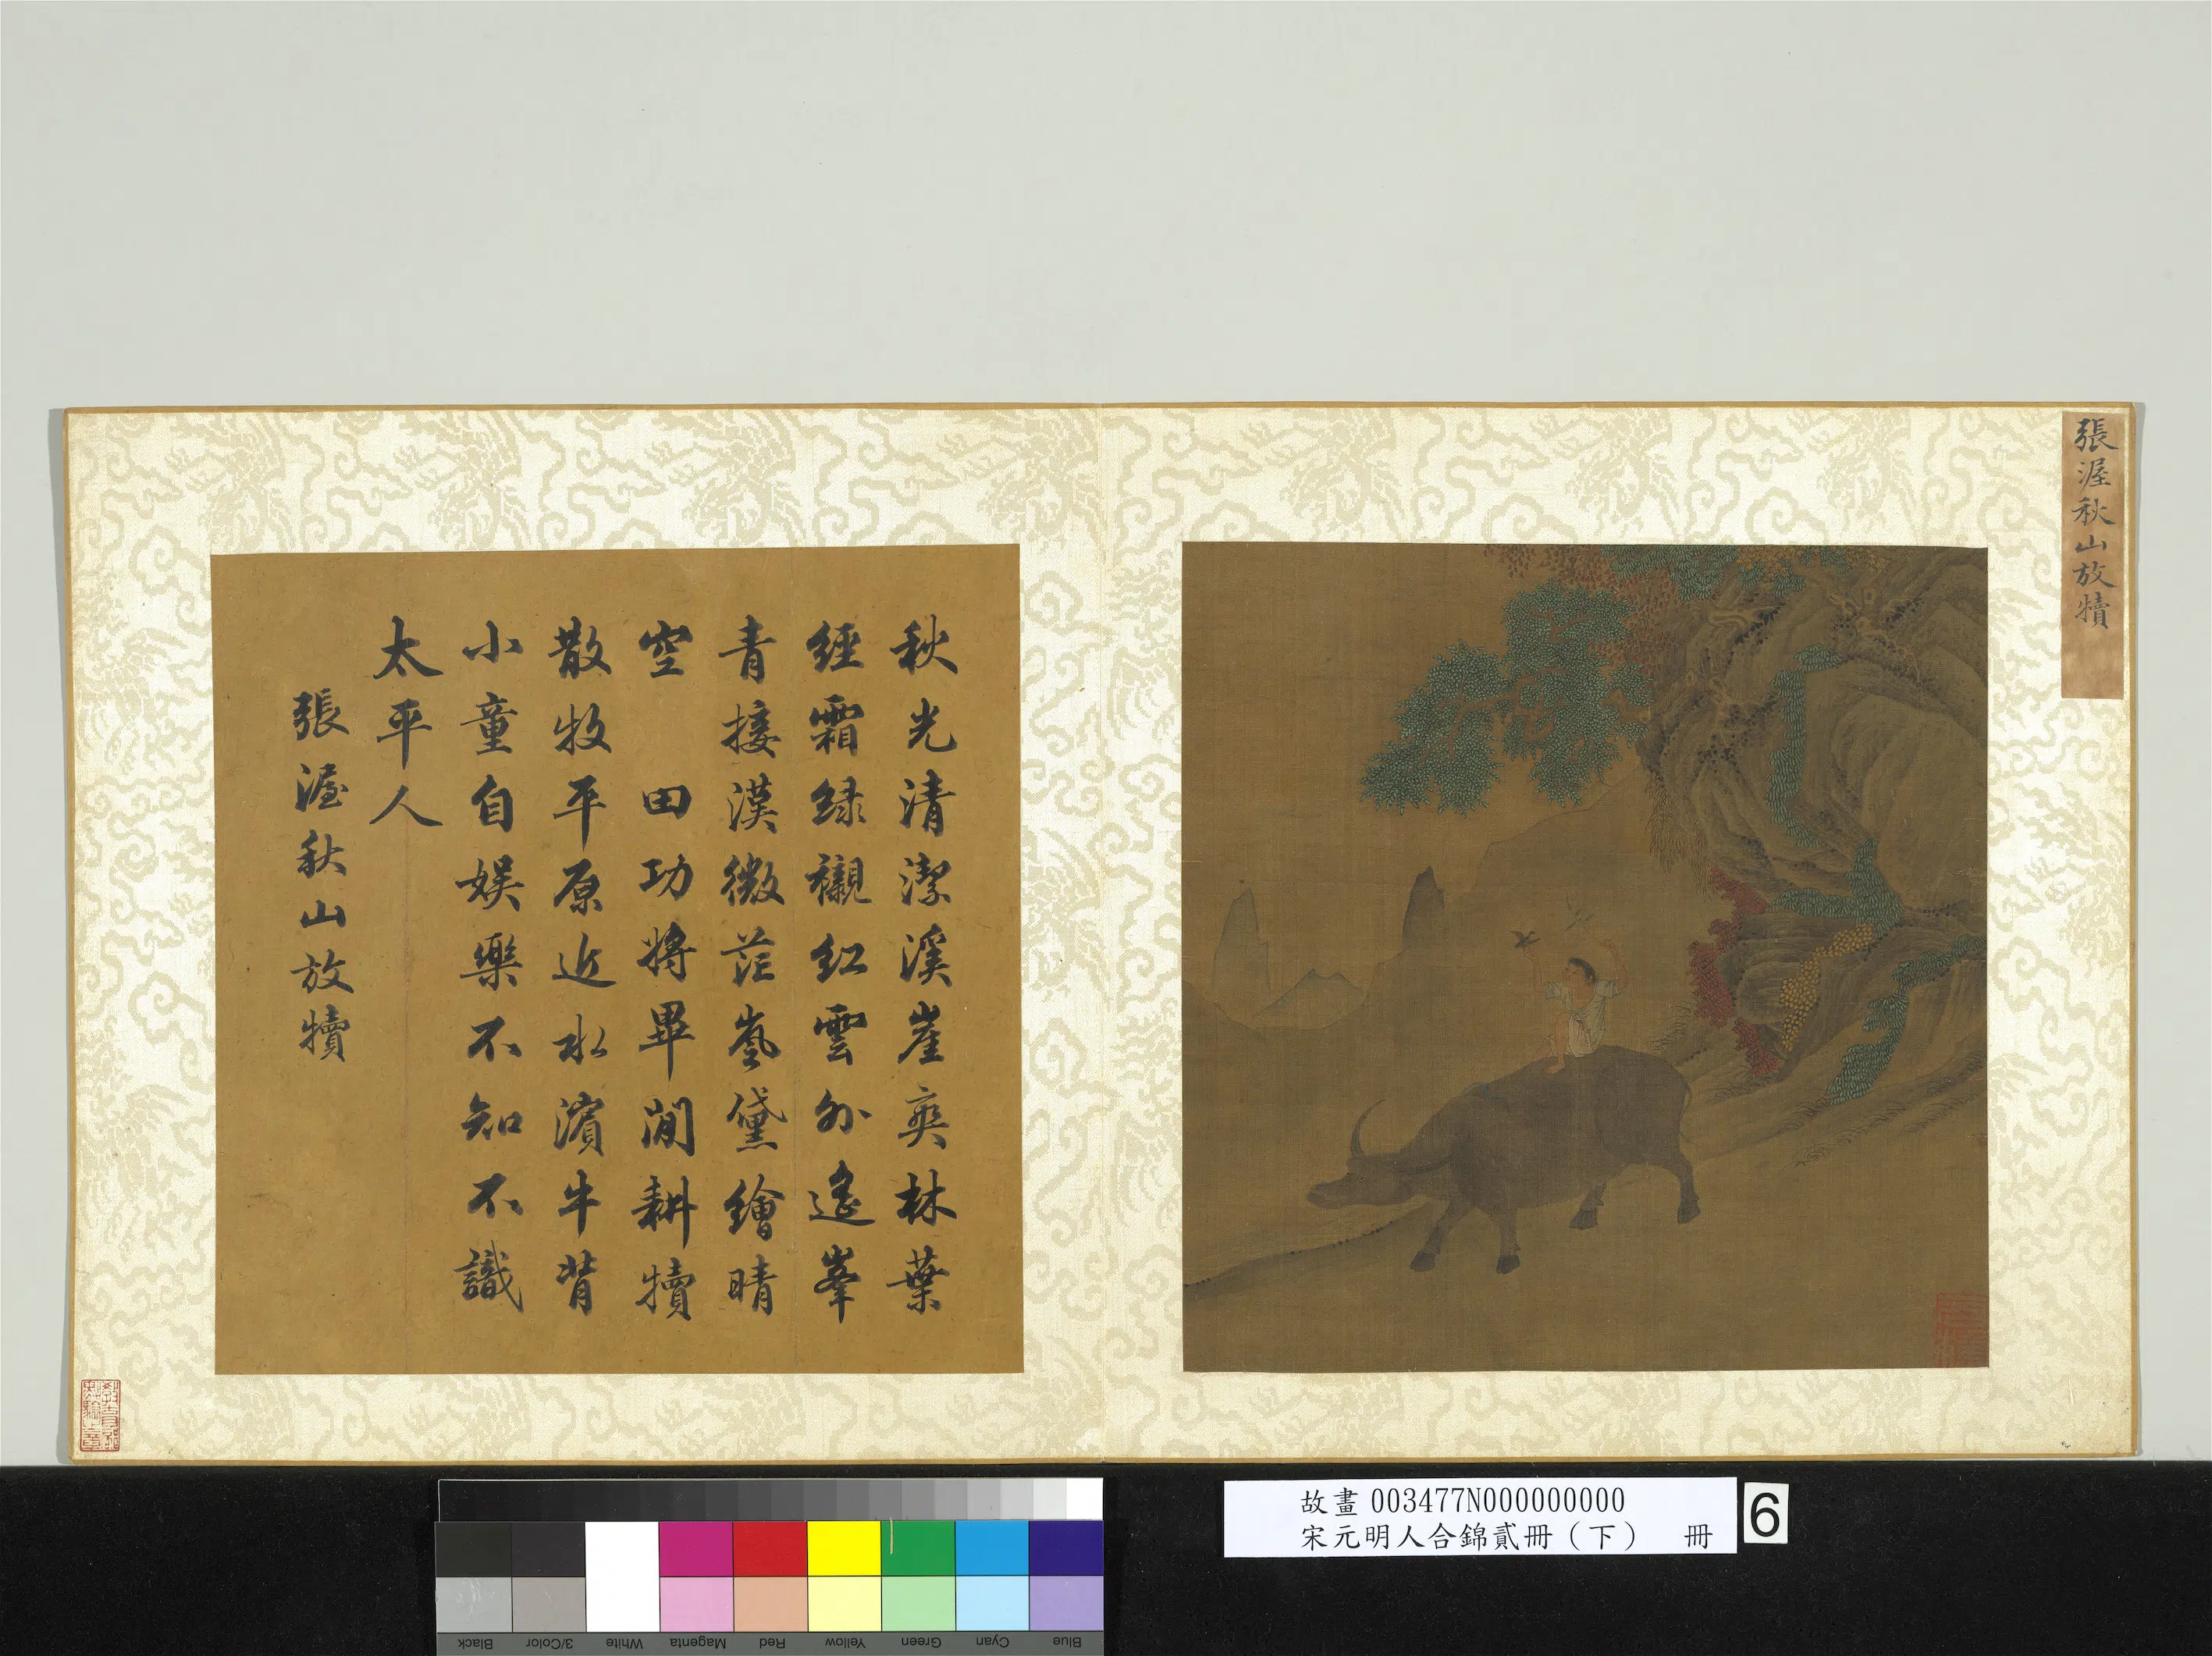 張渥秋山放犢
秋光清潔溪崖爽林葉
經霜綠襯紅雲外遙峯
青接漢微茫嵐黛繪晴
空　田功將畢閒耕犢
散牧平原近水濱牛背
小童自娛樂不知不識
太平人
張渥秋山放犢
故畫 003477N000000000
宋元明人合錦貳冊（下）　冊
6
Black
3/Color
White
Magenta
Red
Yellow
Green
Cyan
Blue